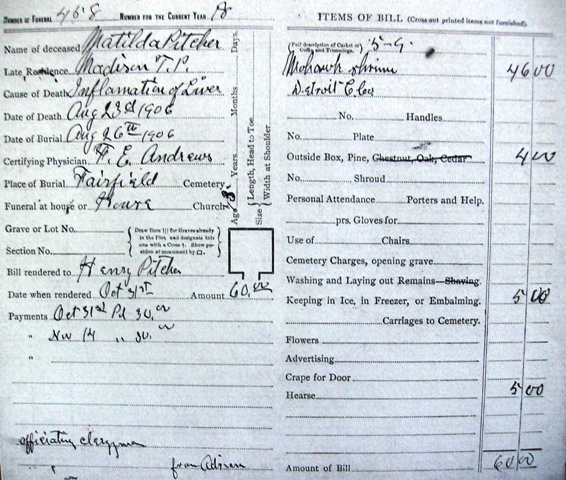 NUMBER OF FUNERAL 468 NUMBER FOR THE CURRENT YEAR
Name of deceased Matilda Pitcher
Late Residence Madison T.P.
Cause of Death Inflamation of Liver
Date of Death Aug 23d 1906
Date of Burial Aug 26th 1906
Certifying Physician F. E. Andrews
Place of Burial Fairfield Cemetery
Funeral at house or House Church
Age Years. Months Days.
Size { Length, Head to Toe. Width at Shoulder
Grave or Lot No.
Section No.
{ Draw lines ||| for Graves already in the Plot and designate this one with a Cross †. Show position of monument by □. }
Bill rendered to Henry Pitcher
Date when rendered Oct 31st Amount 60.00
Payments Oct 31st Pd 30.00
" Nov 14 " 30.00
"
officiating clergyman
" from Adrian
ITEMS OF BILL (Cross out printed items not furnished).
(Full description of Casket or Coffin and Trimmings. 5-9
Mohawk shrine 46 00
Detroit C. Co
No. Handles
No. Plate
Outside Box, Pine, Chestnut, Oak, Cedar 4 00
No. Shroud
Personal Attendance Porters and Help.
prs. Gloves for
Use of Chairs.
Cemetery Charges, opening grave
Washing and Laying out Remains—Shaving.
Keeping in Ice, in Freezer, or Embalming. 5 00
Carriages to Cemetery.
Flowers
Advertising
Crape for Door
Hearse 5 00
Amount of Bill 60 00